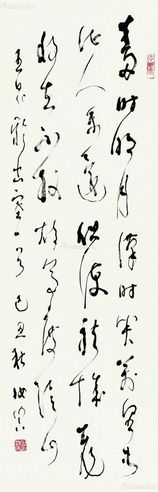 秦时明月汉时关万里长
征人未还但使龙城飞
将在不教胡马度阴山
王昌龄出塞一首己丑秋